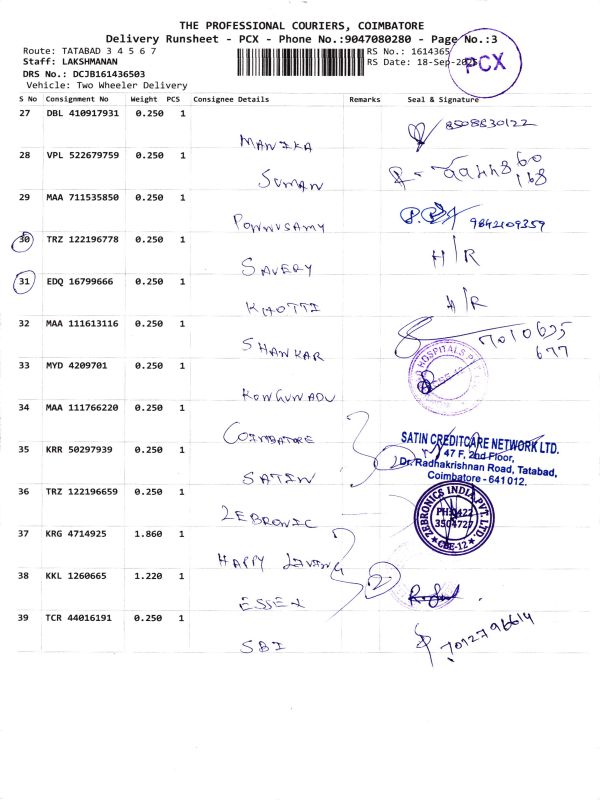 THE PROFESSIONAL COURIERS, COIMBATORE
Delivery Runsheet - PCX - Phone No.:9047080280 - Page No.:3
Route: TATABAD 3 4 5 6 7
RS No.: 1614365
Staff: LAKSHMANAN
RS Date: 18-Sep-2025
PCX
DRS No.: DCJB161436503
Vehicle: Two Wheeler Delivery
S No Consignment No Weight PCS Consignee Details Remarks Seal & Signature
27 DBL 410917931 0.250 1
MANIKA 8508830122
28 VPL 522679759 0.250 1
SUMAN
168
29 MAA 711535850 0.250 1
PONNUSAMY 9842109359
30 TRZ 122196778 0.250 1
SAVERY H/R
31 EDQ 16799666 0.250 1
KHOTTI H/R
32 MAA 111613116 0.250 1
SHANKAR 7010635
677
33 MYD 4209701 0.250 1
HOSPITALS
KONGUNADU
34 MAA 111766220 0.250 1
COIMBATORE
SATIN CREDITCARE NETWORK LTD.
47 F, 2nd Floor,
Dr. Radhakrishnan Road, Tatabad,
Coimbatore - 641 012.
35 KRR 50297939 0.250 1
SATIN
36 TRZ 122196659 0.250 1
ZEBRONIC
ZEBRONICS INDIA PVT. LTD.
PH:0422
3504727
CBE-12
37 KRG 4714925 1.860 1
HAPPY LIVING
38 KKL 1260665 1.220 1
2
ESSEX
39 TCR 44016191 0.250 1
SBI 7012796614